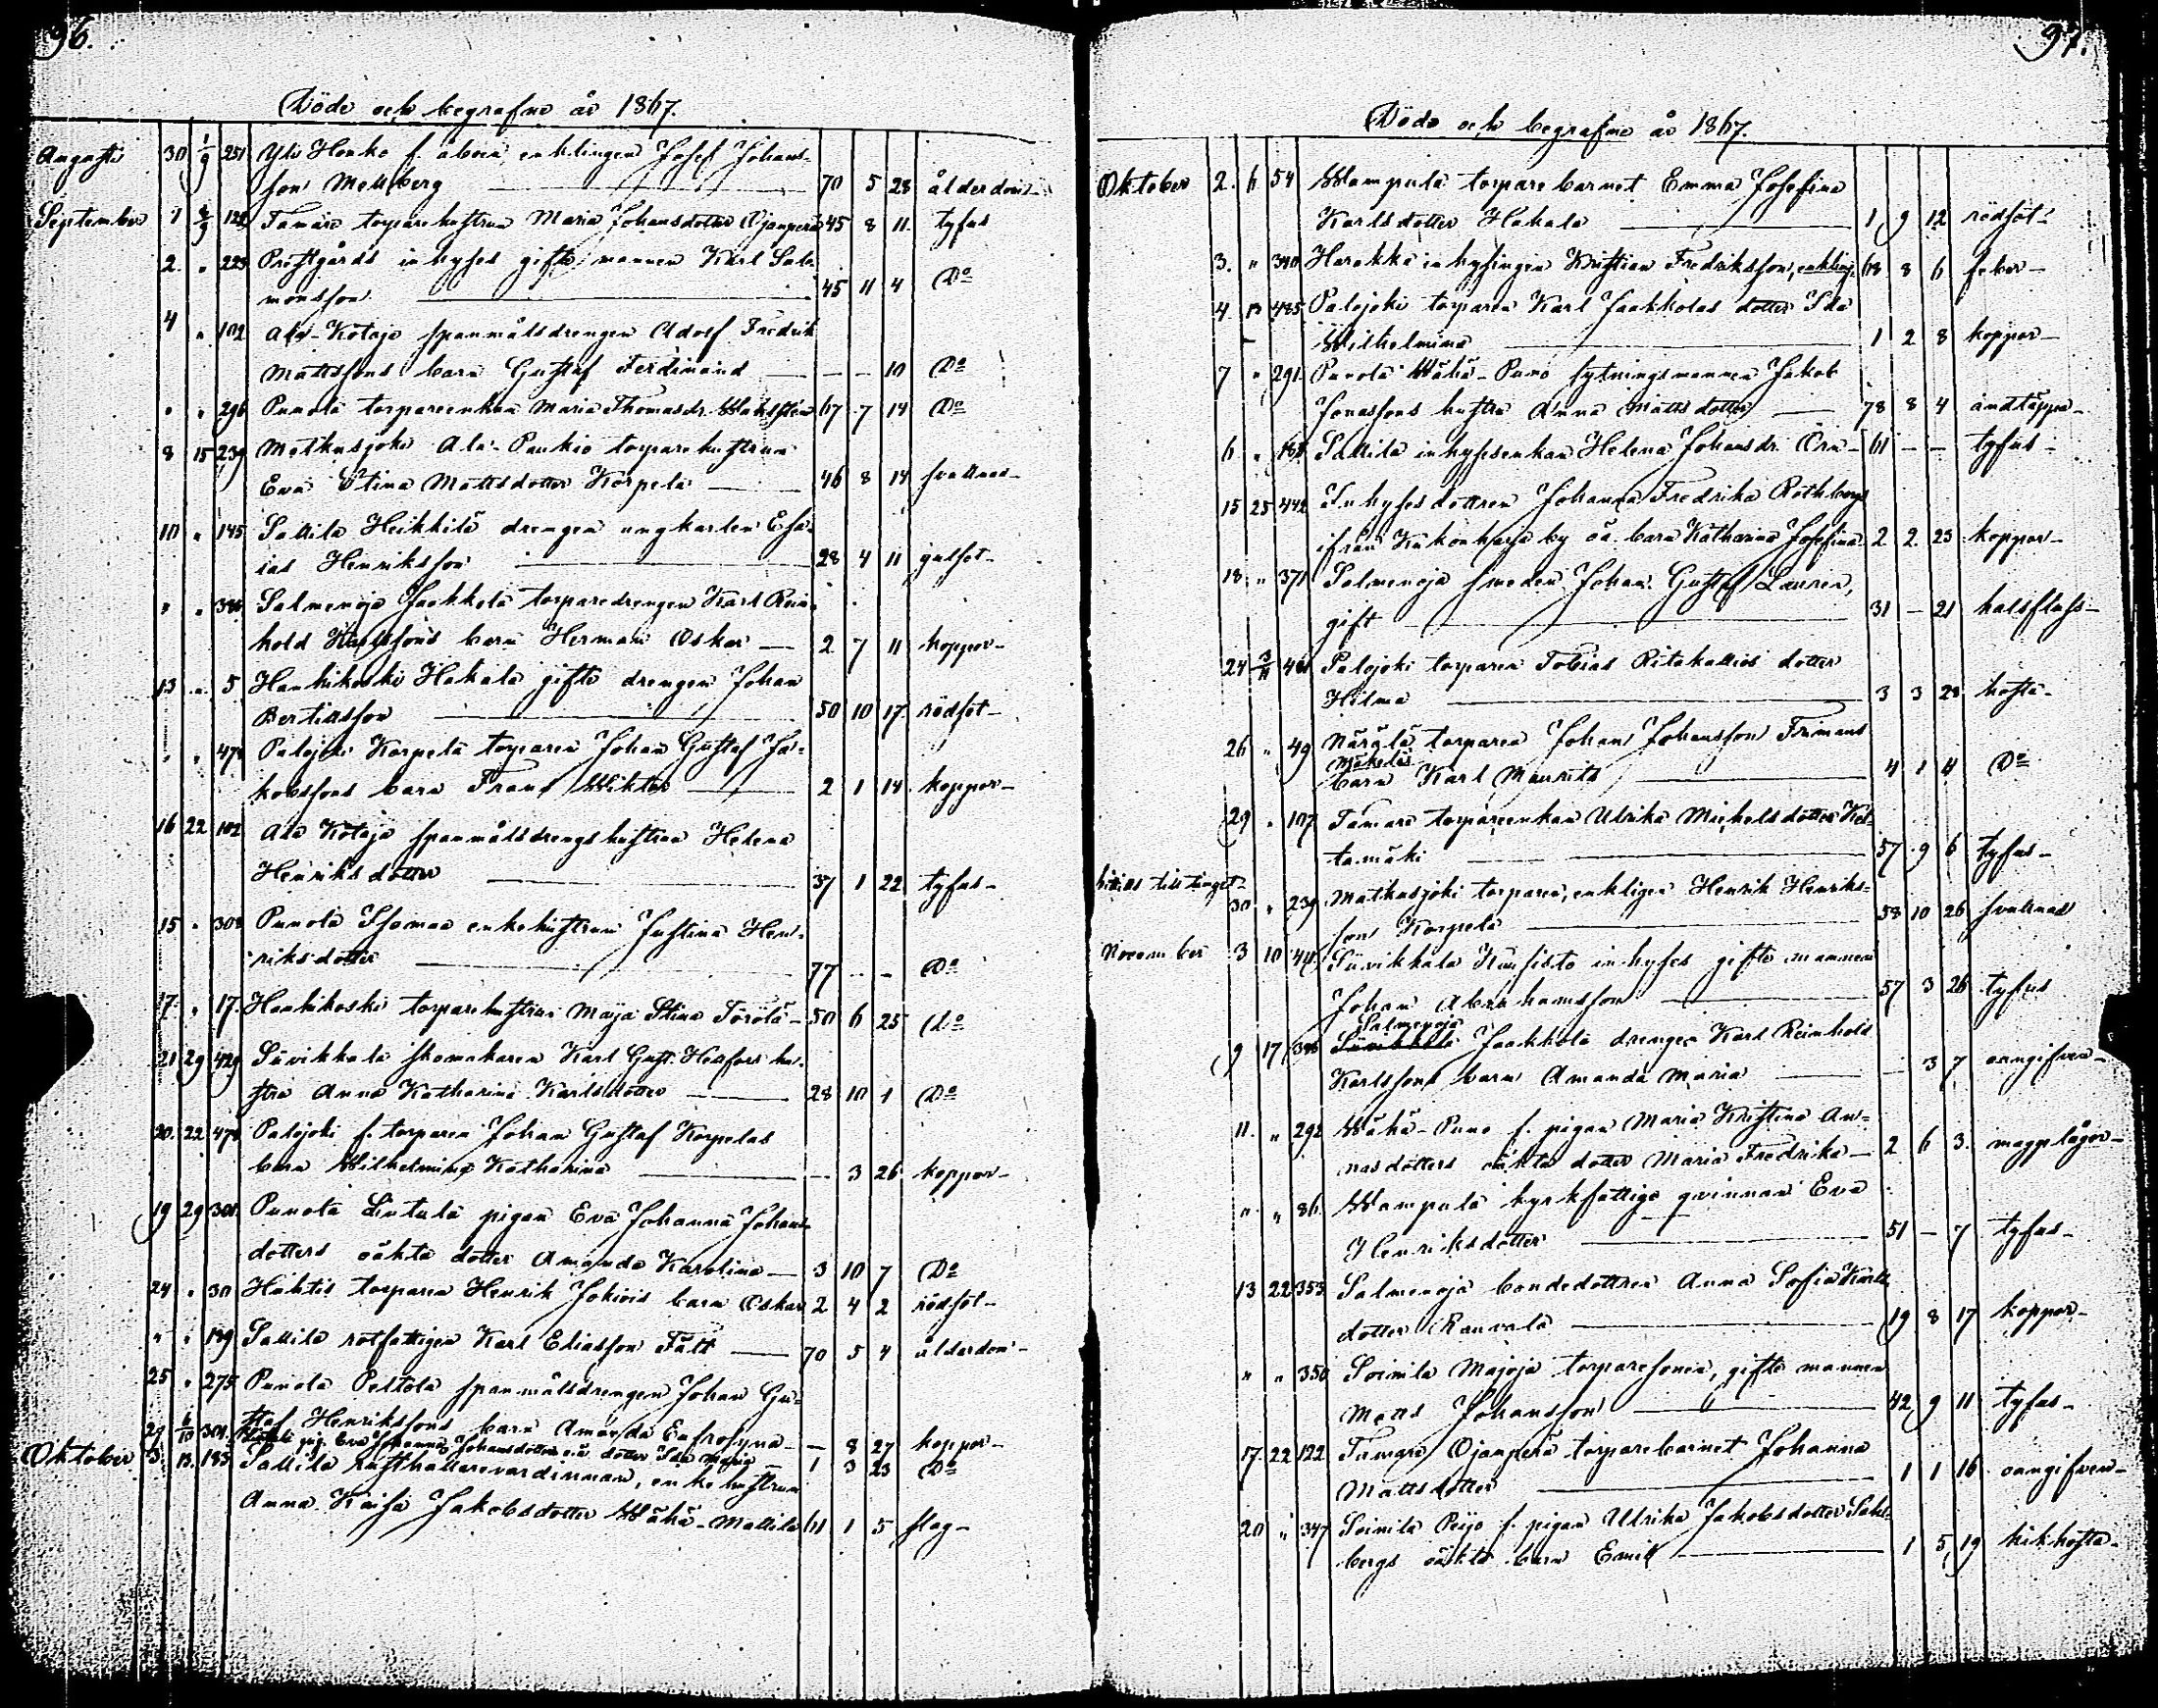 96.
Döde och begrafne år 1867.
Augusti 30 1/9 251 Yli Honko f. åboen, enklingen Josef Johans-
son Mellberg 70 5 28 ålderdom
September 1 8/9 122 Tamare torparehustrun Maria Johansdotter Ojanperä 45 8 11 tyfus
2 " 223 Prestgårds inhyses gifte mannen Karl Salo-
monsson 45 11 4 Do
4 " 102 Ala-Kötajo spanmålsdrengen Adolf Fredrik
Mattssons barn Gustaf Ferdinand — — 10 Do
" " 296 Punola torpareenkan Maria Thomasdr. Wahlsten 67 7 14 Do
8 15 239 Matkusjoki Ala-Paukio torparehustrun
Eva Stina Mattsdotter Korpela 46 8 14 svullnad
10 " 145 Sallila Heikkilä drengen ungkarlen Esa-
ias Henriksson 28 4 11 gulsot
" " 386 Salmenoja Jaakkola torparedrengen Karl Rein-
hold Karlssons barn Herman Oskar 2 7 11 koppor
13 " 5 Hanhikoski Hakala gifte drengen Johan
Bertilsson 50 10 17 rödsot
" " 478 Palojoki Korpela torparen Johan Gustaf Ja-
kobssons barn Frans Wiktor 2 1 14 koppor
16 22 102 Ala Kötajo spanmålsdrengshustrun Helena
Henriksdotter 37 1 22 tyfus
15 " 308 Punola Isomaa enkehustrun Justina Hen-
riksdotter 77 - - Do
17 " 17 Hanhikoski torparehustrun Maja Stina Törölä 50 6 25 Do
21 29 429 Süvikkala skomakaren Karl Gust. Helfors hu-
stru Anna Katharina Karlsdotter 28 10 1 Do
20 22 478 Palojoki f. torparen Johan Gustaf Korpelas
barn Wilhelmina Katharina — 3 26 koppor
19 29 301 Punola Lintula pigan Eva Johanna Johans-
dotters oäkta dotter Amanda Karolina 3 10 7 Do
24 " 30 Huhtis torparen Henrik Jokivis barn Oskar 2 4 2 rödsot
" " 139 Sallila rotfattigen Karl Eliasson Fält 70 5 4 ålderdom
25 " 275 Punola Peltola spanmålsdrengen Johan Gu-
staf Henrikssons barn Amanda Eufrosyna — 8 27 koppor
29 6/10 301 pig. Eva Johanna Johansdotters oä. dotter Ida Maria 1 3 23 Do
Oktober 3 13 185 Sallila rusthållarevärdinnan, enkehustrun
Anna Kaisa Jakobsdotter Wähä-Mallila 61 1 5 slag
97.
Döde och begrafne år 1867.
Oktober 2 6 54 Wampula torparebarnet Emma Josefina
Karlsdotter Hakala 1 9 12 rödsot
3 " 340 Harakka inhysingen Kristian Fredriksson, enkling 68 8 6 feber
4 13 485 Palojoki torparen Karl Jaakkolas dotter Ida
Wilhelmina 1 2 8 koppor
7 " 291 Punola Wähä-Puno sytningsmannen Jakob
Jonassons hustru Anna Mattsdotter 78 8 4 andtäppa
6 " 181 Sallila inhysesenkan Helena Johansdr. Örn 61 - - tyfus
15 25 442 Inhysesdottren Johanna Fredrika Rothbergs
ifrån Kukonharja by oä. barn Katharina Josefina 2 2 23 koppor
18 " 371 Salmenoja smeden Johan Gustaf Lauren,
gift 31 — 21 halsfluss
24 3/11 481 Palojoki torparen Tobias Ritakallios dotter
Hilma 3 3 28 hosta
26 " 49 Närälä torparen Johan Johansson Frimans
Mäkelä
barn Karl Maurits 4 1 4 Do
29 " 107 Tamare torpareenkan Ulrika Michelsdotter Kel-
tamäki 57 9 6 tyfus
hittills till tinget
30 " 239 Matkusjoki torparen, enklingen Henrik Henriks-
son Korpela 58 10 26 svullnad
November 3 10 441 Süvikkala Kunfisto inhyses gifte mannen
Johan Abrahamsson 57 3 26 tyfus
Salmenoja
9 17 386 Süvikkala Jaakkola drengen Karl Reinhold
Karlssons barn Amanda Maria — 3 7 oangifven
11 " 292 Wähä-Puno f. pigan Maria Kristina An-
nasdotters oäkta dotter Maria Fredrika 2 6 3 magplågor
" " 86 Wampula kyrkfattige qvinnan Eva
Henriksdotter 51 — 7 tyfus
13 22 353 Salmenoja bondedottren Anna Sofia Karls-
dotter Rauvala 19 8 17 koppor
" " 350 Soinila Majoja torparesonen, gifte mannen
Matts Johansson 42 9 11 tyfus
17 22 122 Tamare Ojanperä torparebarnet Johanna
Mattsdotter 1 1 16 oangifven
20 " 347 Soinila Peijo f. pigan Ulrika Jakobsdotter Sahl-
bergs oäkta barn Emil 1 5 19 kikhosta